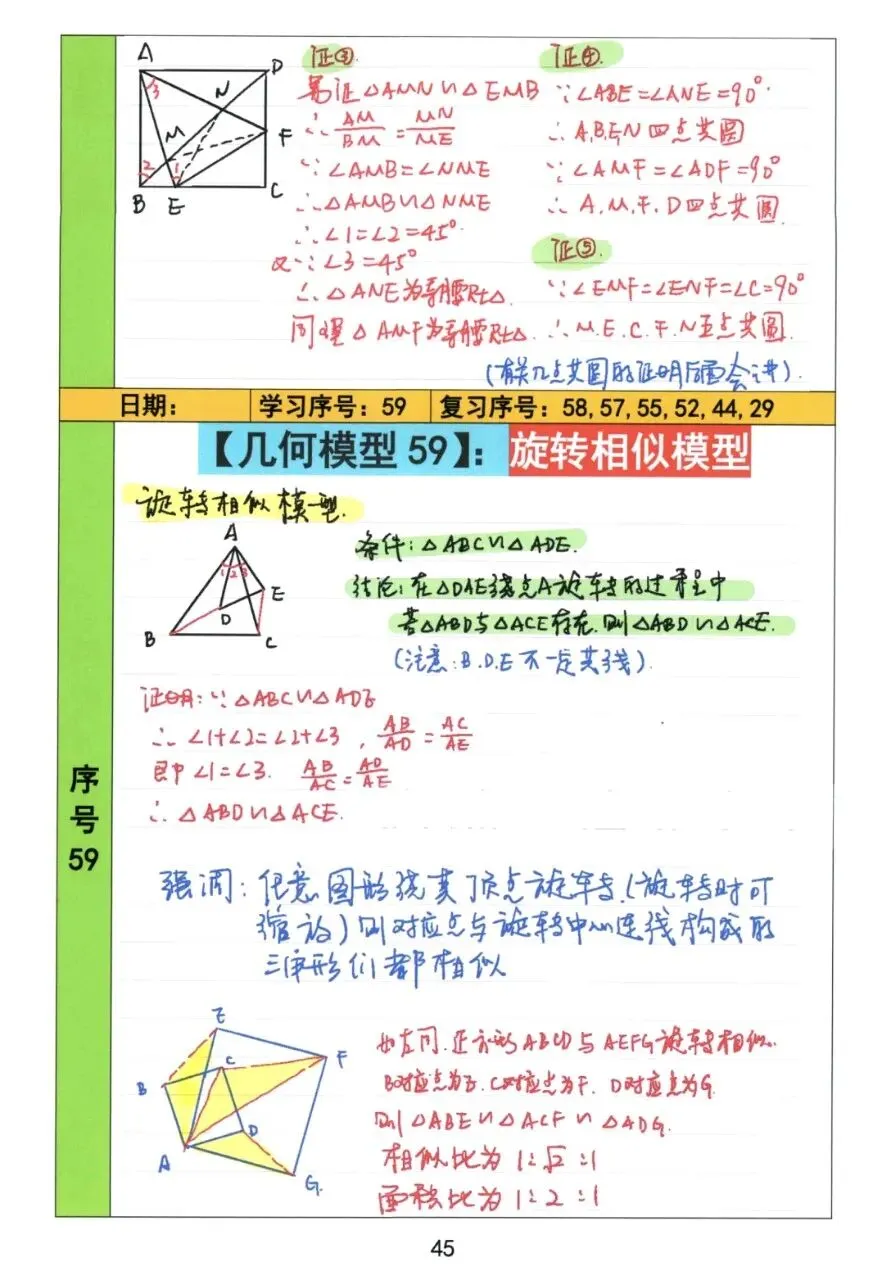 A
D
N
3
M
F
2
1
B
E
C
证③
易证△AMN∽△EMB
∴ AM/BM = MN/ME
∵∠AMB=∠NME
∴△AMB∽△NME
∴∠1=∠2=45°
又∵∠3=45°
∴△ANE为等腰Rt△
同理△AMF为等腰Rt△
证④
∵∠ABE=∠ANE=90°
∴A,B,E,N四点共圆
∵∠AMF=∠ADF=90°
∴A.M.F.D四点共圆
证⑤
∵∠EMF=∠ENF=∠C=90°
∴M.E.C.F.N五点共圆
(有关几点共圆的证明后面会讲).
日期: 学习序号:59 复习序号:58,57,55,52,44,29
【几何模型 59】:旋转相似模型
序号59
旋转相似模型.
A
1 2 3
E
D
B
C
条件:△ABC∽△ADE.
结论:在△DAE绕点A旋转的过程中
若△ABD与△ACE存在.则△ABD∽△ACE.
(注意:B.D.E不一定共线).
证明:∵△ABC∽△ADE
∴∠1+∠2=∠2+∠3, AB/AD = AC/AE
即∠1=∠3. AB/AC = AD/AE
∴△ABD∽△ACE.
强调:任意图形绕其顶点旋转.(旋转时可
缩放)则对应点与旋转中心连线构成的
三角形们都相似
E
C
F
B
D
A
G
如左图.正方形ABCD与AEFG旋转相似.
B对应点为E.C对应点为F.D对应点为G.
则△ABE∽△ACF∽△ADG.
相似比为1:√2:1
面积比为1:2:1
45